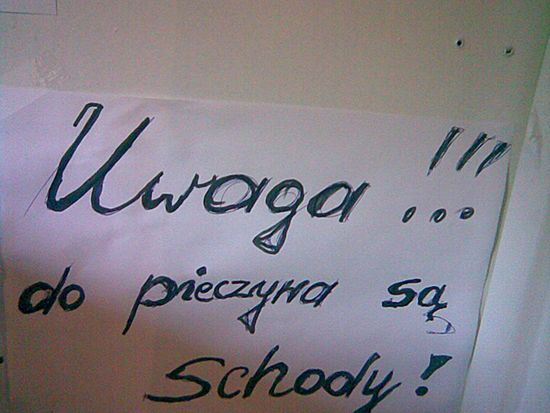 Uwaga!!!
do pieczywa są
schody!